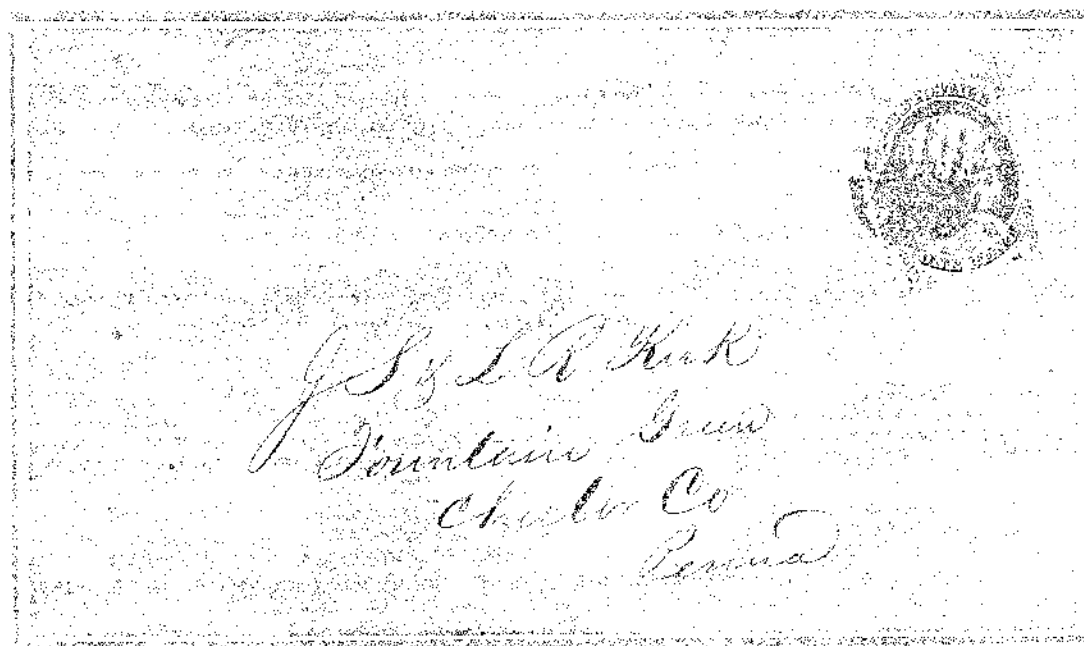 J S & L R Kirk
Fountain Green
Chester Co
Penna